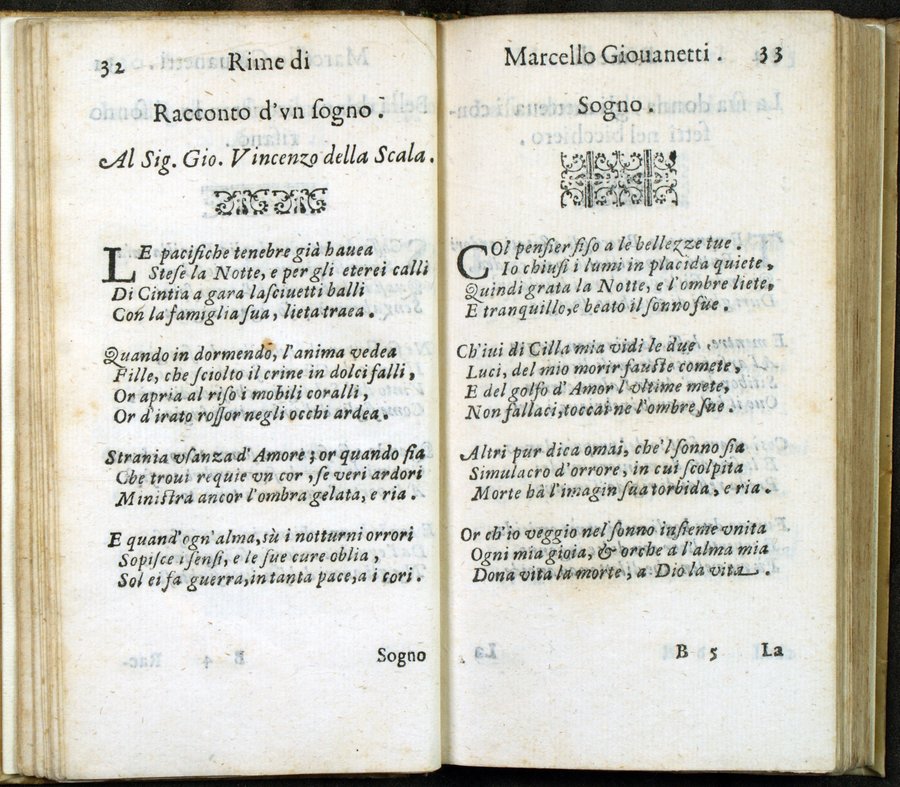 32 Rime di
Racconto d'vn ſogno.
Al Sig. Gio. Vincenzo della Scala.
LE pacifiche tenebre già hauea
Steſe la Notte, e per gli eterei calli
Di Cintia a gara laſciuetti balli
Con la famiglia ſua, lieta traea.
Quando in dormendo, l'anima vedea
Fille, che ſciolto il crine in dolci falli,
Or apria al riſo i mobili coralli,
Or d'irato roſſor negli occhi ardea.
Strania vſanza d'Amore; or quando fia
Che troui requie vn cor, ſe veri ardori
Miniſtra ancor l'ombra gelata, e ria.
E quand'ogn'alma, sù i notturni orrori
Sopiſce i ſenſi, e le ſue cure oblia,
Sol ei fa guerra, in tanta pace, a i cori.
Sogno
Marcello Giouanetti. 33
Sogno.
COl penſier fiſo a le bellezze tue.
Io chiuſi i lumi in placida quiete,
Quindi grata la Notte, e l'ombre liete,
E tranquillo, e beato il ſonno fue.
Ch'iui di Cilla mia vidi le due,
Luci, del mio morir fauſte comete,
E del golfo d'Amor l'vltime mete,
Non fallaci, toccai ne l'ombre ſue.
Altri pur dica omai, che'l ſonno ſia
Simulacro d'orrore, in cui ſcolpita
Morte hà l'imagin ſua torbida, e ria.
Or ch'io veggio nel ſonno inſieme vnita
Ogni mia gioia, & or che a l'alma mia
Dona vita la morte, a Dio la vita.
B 5 La